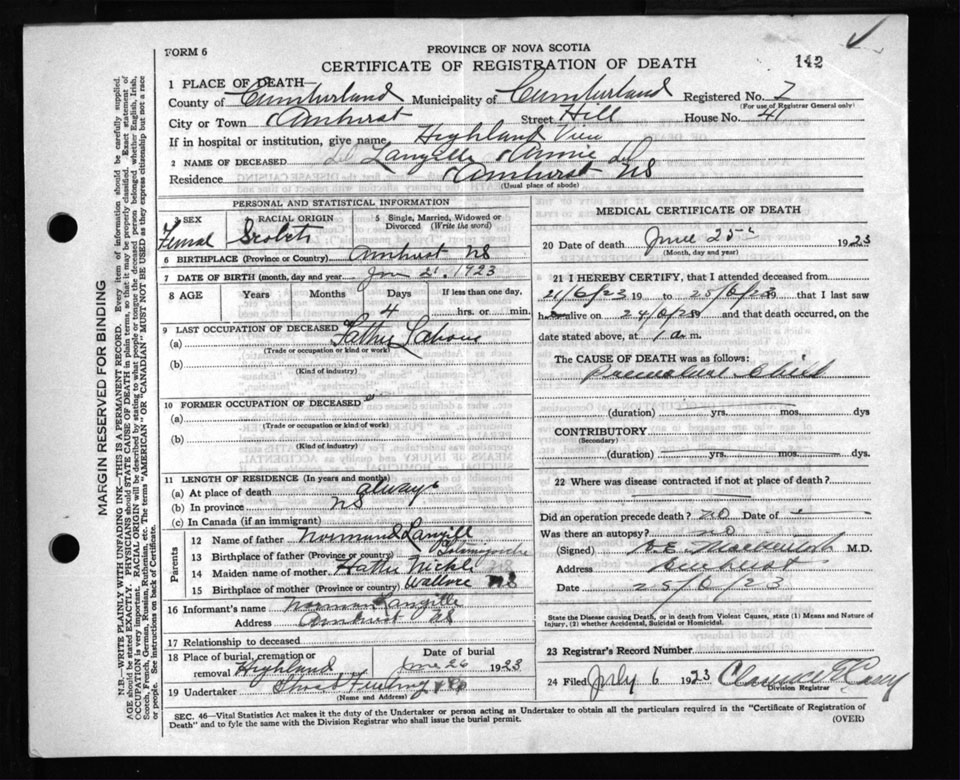 FORM 6
PROVINCE OF NOVA SCOTIA
CERTIFICATE OF REGISTRATION OF DEATH
142
1 PLACE OF DEATH
County of Cumberland Municipality of Cumberland Registered No. 7
(For use of Registrar General only)
City or Town Amherst Street Hill House No. 41
If in hospital or institution, give name Highland View
2 NAME OF DECEASED Langille Annie
Residence Amherst NS
(Usual place of abode)
PERSONAL AND STATISTICAL INFORMATION
3 SEX RACIAL ORIGIN 5 Single, Married, Widowed or Divorced (Write the word)
Femal Scotch
6 BIRTHPLACE (Province or Country) Amherst NS
7 DATE OF BIRTH (month, day and year) 21. 1923
8 AGE Years Months Days If less than one day,
4 hrs. or min.
9 LAST OCCUPATION OF DECEASED
(a)
(Trade or occupation or kind or work)
(b)
(Kind of industry)
10 FORMER OCCUPATION OF DECEASED
(a)
(Trade or occupation or kind or work)
(b)
(Kind of industry)
11 LENGTH OF RESIDENCE (In years and months)
(a) At place of death always
(b) In province NS
(c) In Canada (if an immigrant)
Parents
12 Name of father Norman Langill
13 Birthplace of father (Province or country)
14 Maiden name of mother Hattie
15 Birthplace of mother (Province or country) Wallace NS
16 Informant's name Norman Langille
Address Amherst NS
17 Relationship to deceased
18 Place of burial, cremation or removal Highland
Date of burial
June 26 1923
19 Undertaker
(Name and Address)
MEDICAL CERTIFICATE OF DEATH
20 Date of death June 25 1923
(Month, day and year)
21 I HEREBY CERTIFY, that I attended deceased from
21/6/23 19 to 25/6/23 19 that I last saw
h alive on 24/6/23 and that death occurred, on
date stated above, at 1 a.m.
The CAUSE OF DEATH was as follows:
Premature Child
(duration) yrs. mos. dys
CONTRIBUTORY
(Secondary)
(duration) yrs. mos. dys.
22 Where was disease contracted if not at place of death?
Did an operation precede death? no Date of
Was there an autopsy? no
(Signed) M.D.
Address Amherst
Date 25/6/23
State the Disease causing Death, or in death from Violent Causes, state (1) Means and Nature of
Injury, (2) whether Accidental, Suicidal or Homicidal.
23 Registrar's Record Number
24 Filed July 6 1923 Clarence Casey
Division Registrar
SEC. 46—Vital Statistics Act makes it the duty of the Undertaker or person acting as Undertaker to obtain all the particulars required in the "Certificate of Registration of
Death" and to fyle the same with the Division Registrar who shall issue the burial permit.
(OVER)
MARGIN RESERVED FOR BINDING
N.B.—WRITE PLAINLY WITH UNFADING INK—THIS IS A PERMANENT RECORD. Every item of information should be carefully supplied.
AGE should be stated EXACTLY. PHYSICIANS should STATE CAUSE OF DEATH in plain terms, so that it may be properly classified. Exact statement of
OCCUPATION is very important. RACIAL ORIGIN will be described by stating to what people or tongue the deceased person belonged whether English, Irish,
Scotch, French, German, Russian, Ruthenian, etc. The terms "AMERICAN" OR "CANADIAN" MUST NOT BE USED as they express citizenship but not a race
or people. See instructions on back of Certificate.